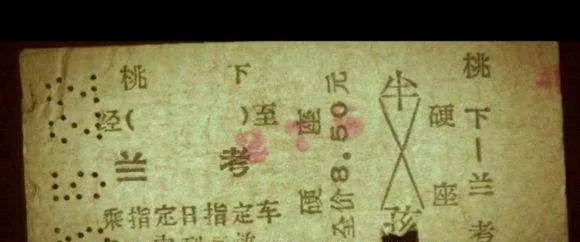 桃下
经( )至
兰考
乘指定日指定车
硬座
全价8.50元
半
孩
硬座
桃下—兰考